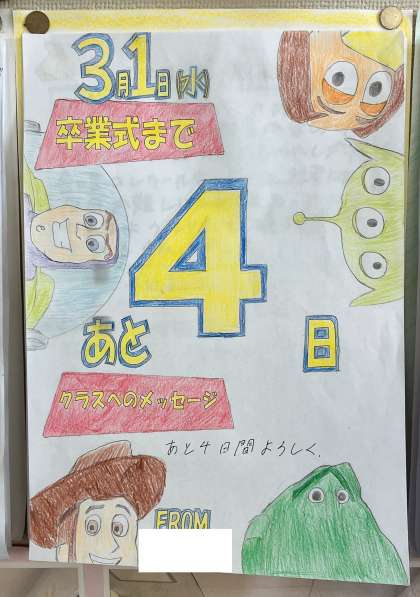 3月1日(水)
卒業式まで
4
あと
日
クラスへのメッセージ
あと4日間よろしく.
FROM